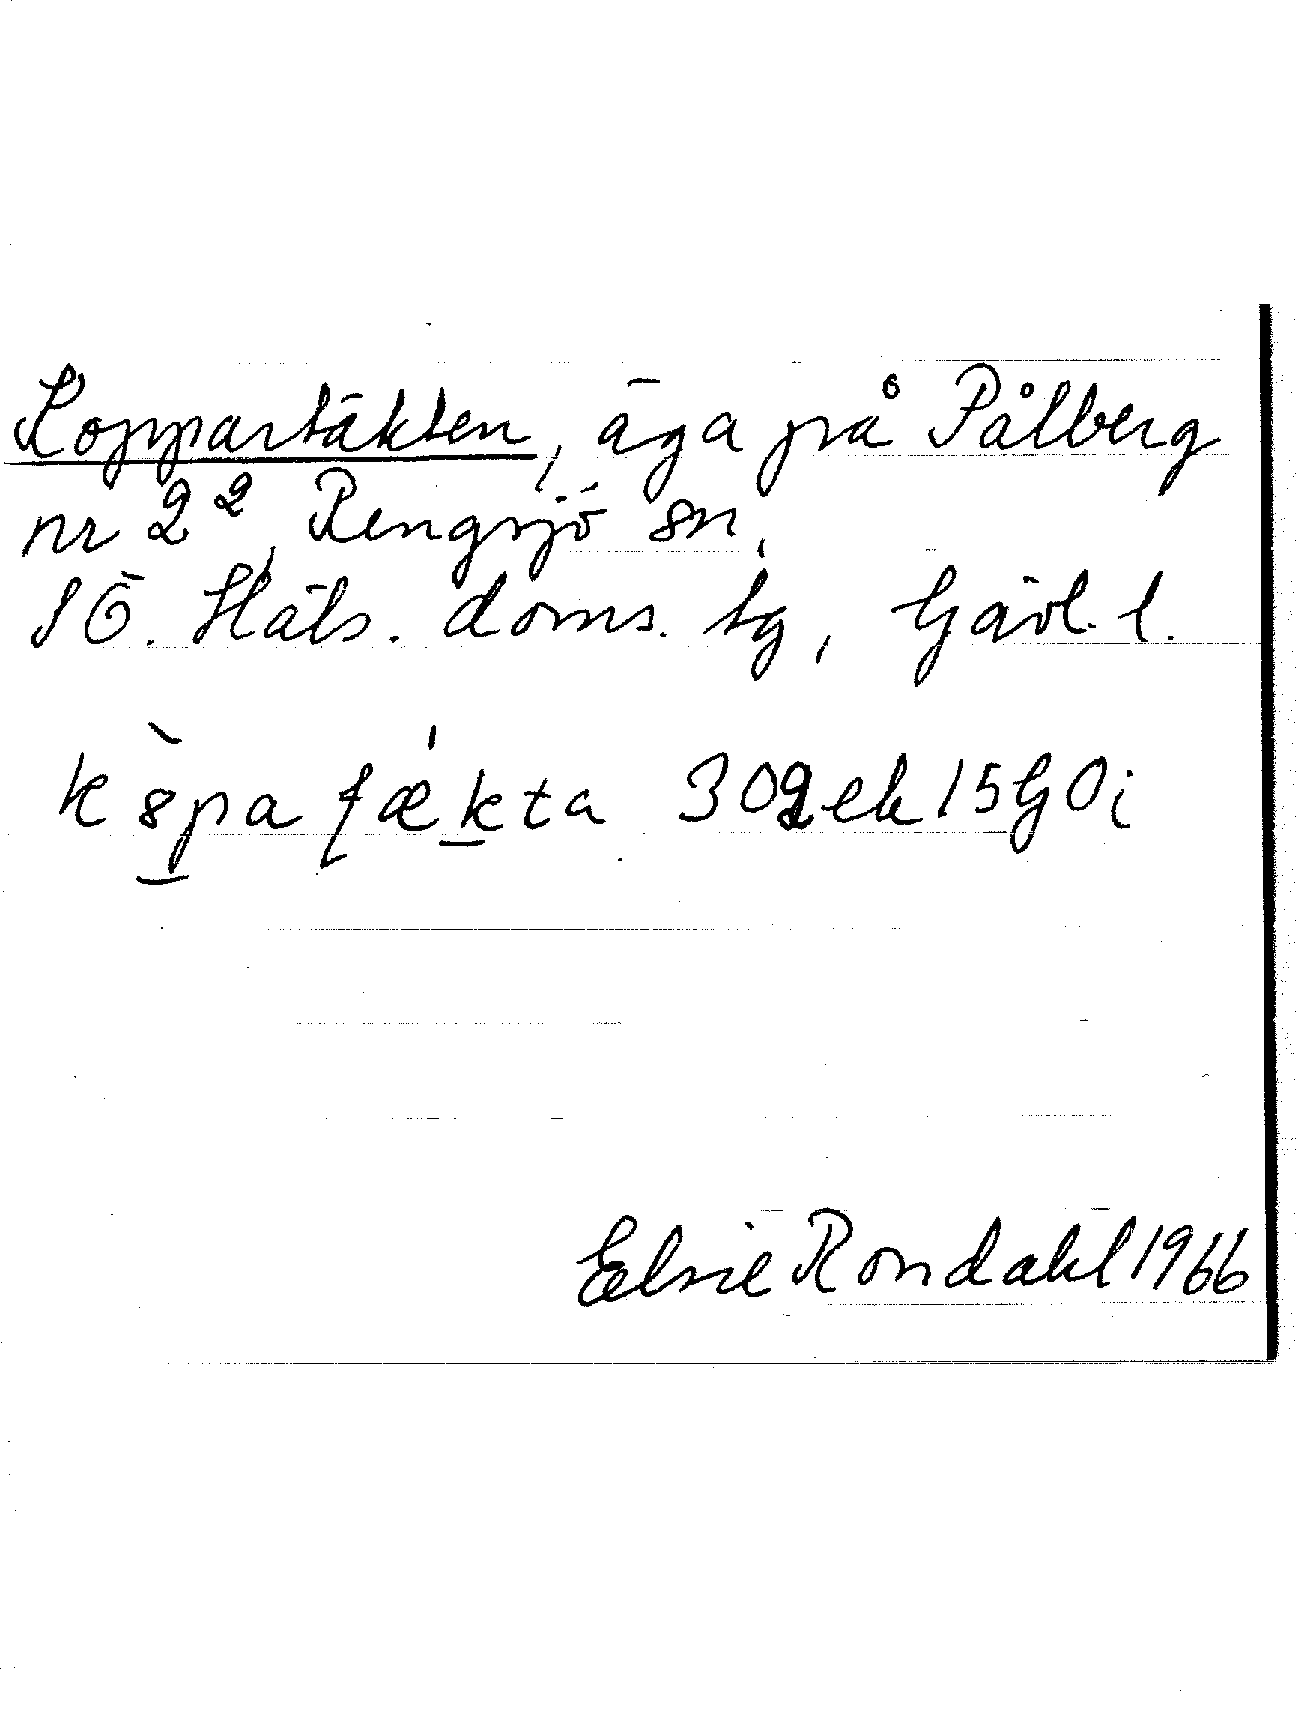 Koppartäkten, äga på Pålberg
nr 2², Rengsjö sn,
SÖ. Häls. doms. tg, Gävl. l.
302ek15G0i
Elsie Rondahl 1966